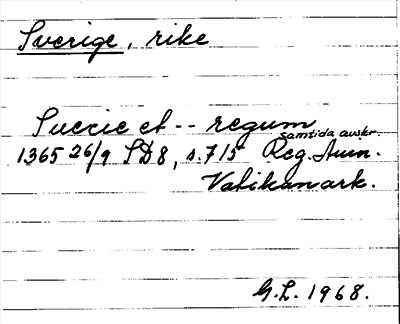 Sverige, rike
Suecie et -- regum
samtida avskr.
1365 26/9 SD8, s. 715 Reg. Avin.
Vatikanark.
G.L. 1968.